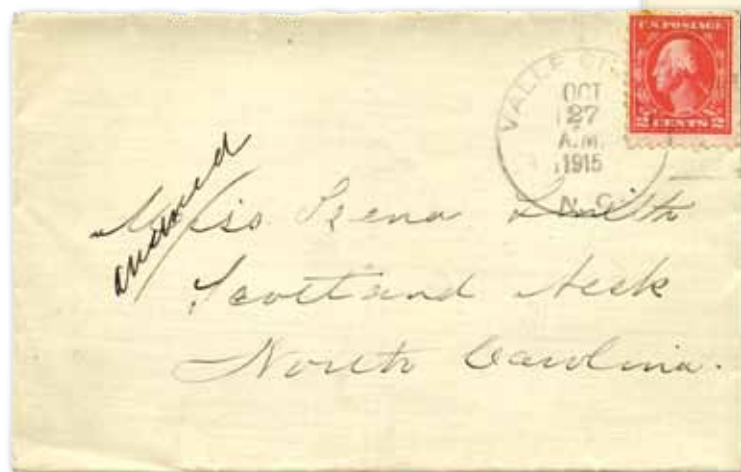 U.S. POSTAGE
2 CENTS 2
VALLE
OCT
27
A.M.
1915
N.C.
answered
Miss Lena Smith
Scotland Neck
North Carolina.